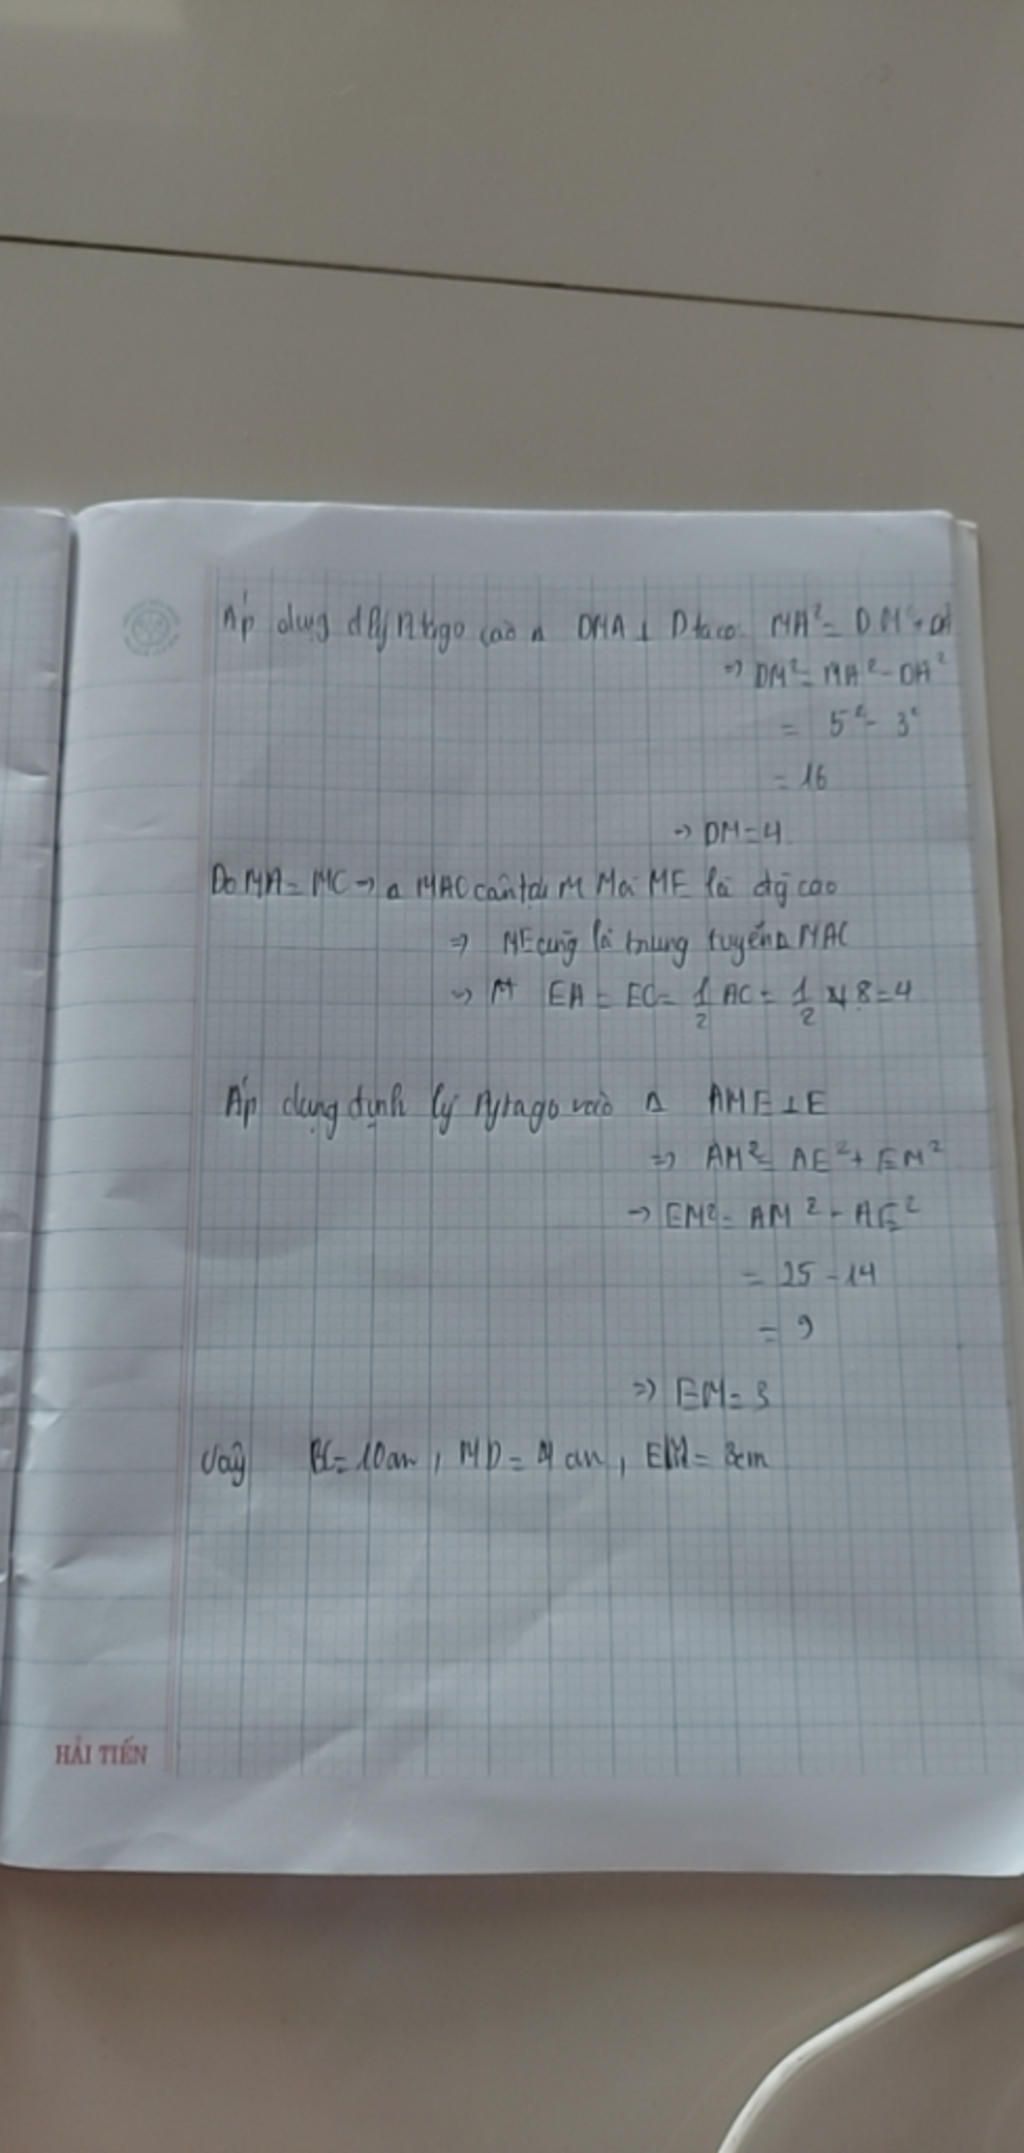 Áp dụng đ lý Pitago vào Δ DMA ⊥ D ta có: MA² = DM² + DA²
=> DM² = MA² - DA²
= 5² - 3²
= 16
-> DM = 4
Do MA = MC -> Δ MAC cân tại M Mà ME là đg cao
=> ME cũng là trung tuyến Δ MAC
-> M EA = EC = 1/2 AC = 1/2 x 8 = 4
Áp dụng định lý Pytago vào Δ AME ⊥ E
=> AM² = AE² + EM²
-> EM² = AM² - AE²
= 25 - 14
= 9
=> EM = 3
Vậy BC = 10cm, MD = 4cm, EM = 3cm
HẢI TIẾN